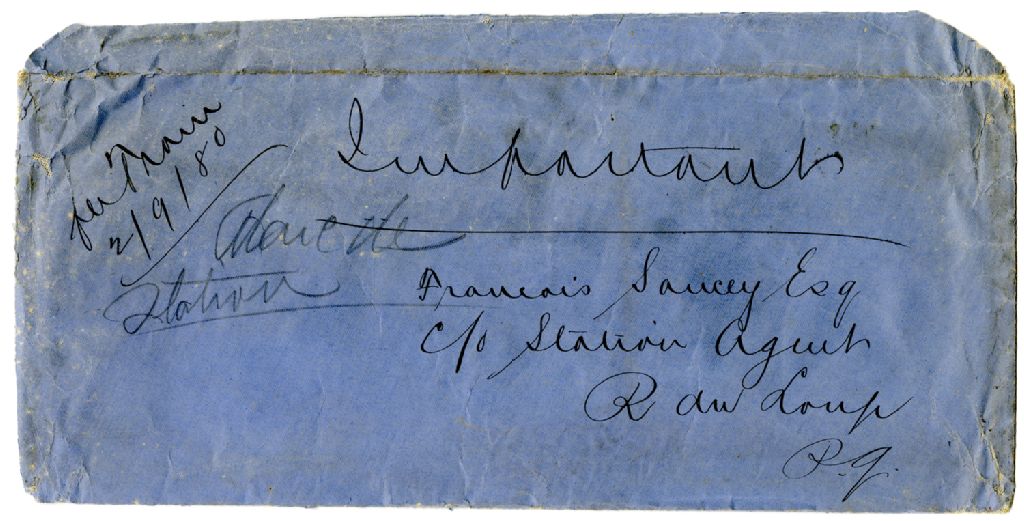 per Train
2/9/80
Important
Station
Francois Saucey Esq
c/o Station Agent
R du Loup
P.Q.